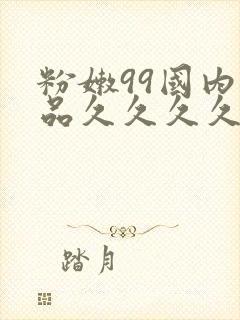 粉嫩99國内
品久久久久
踏月